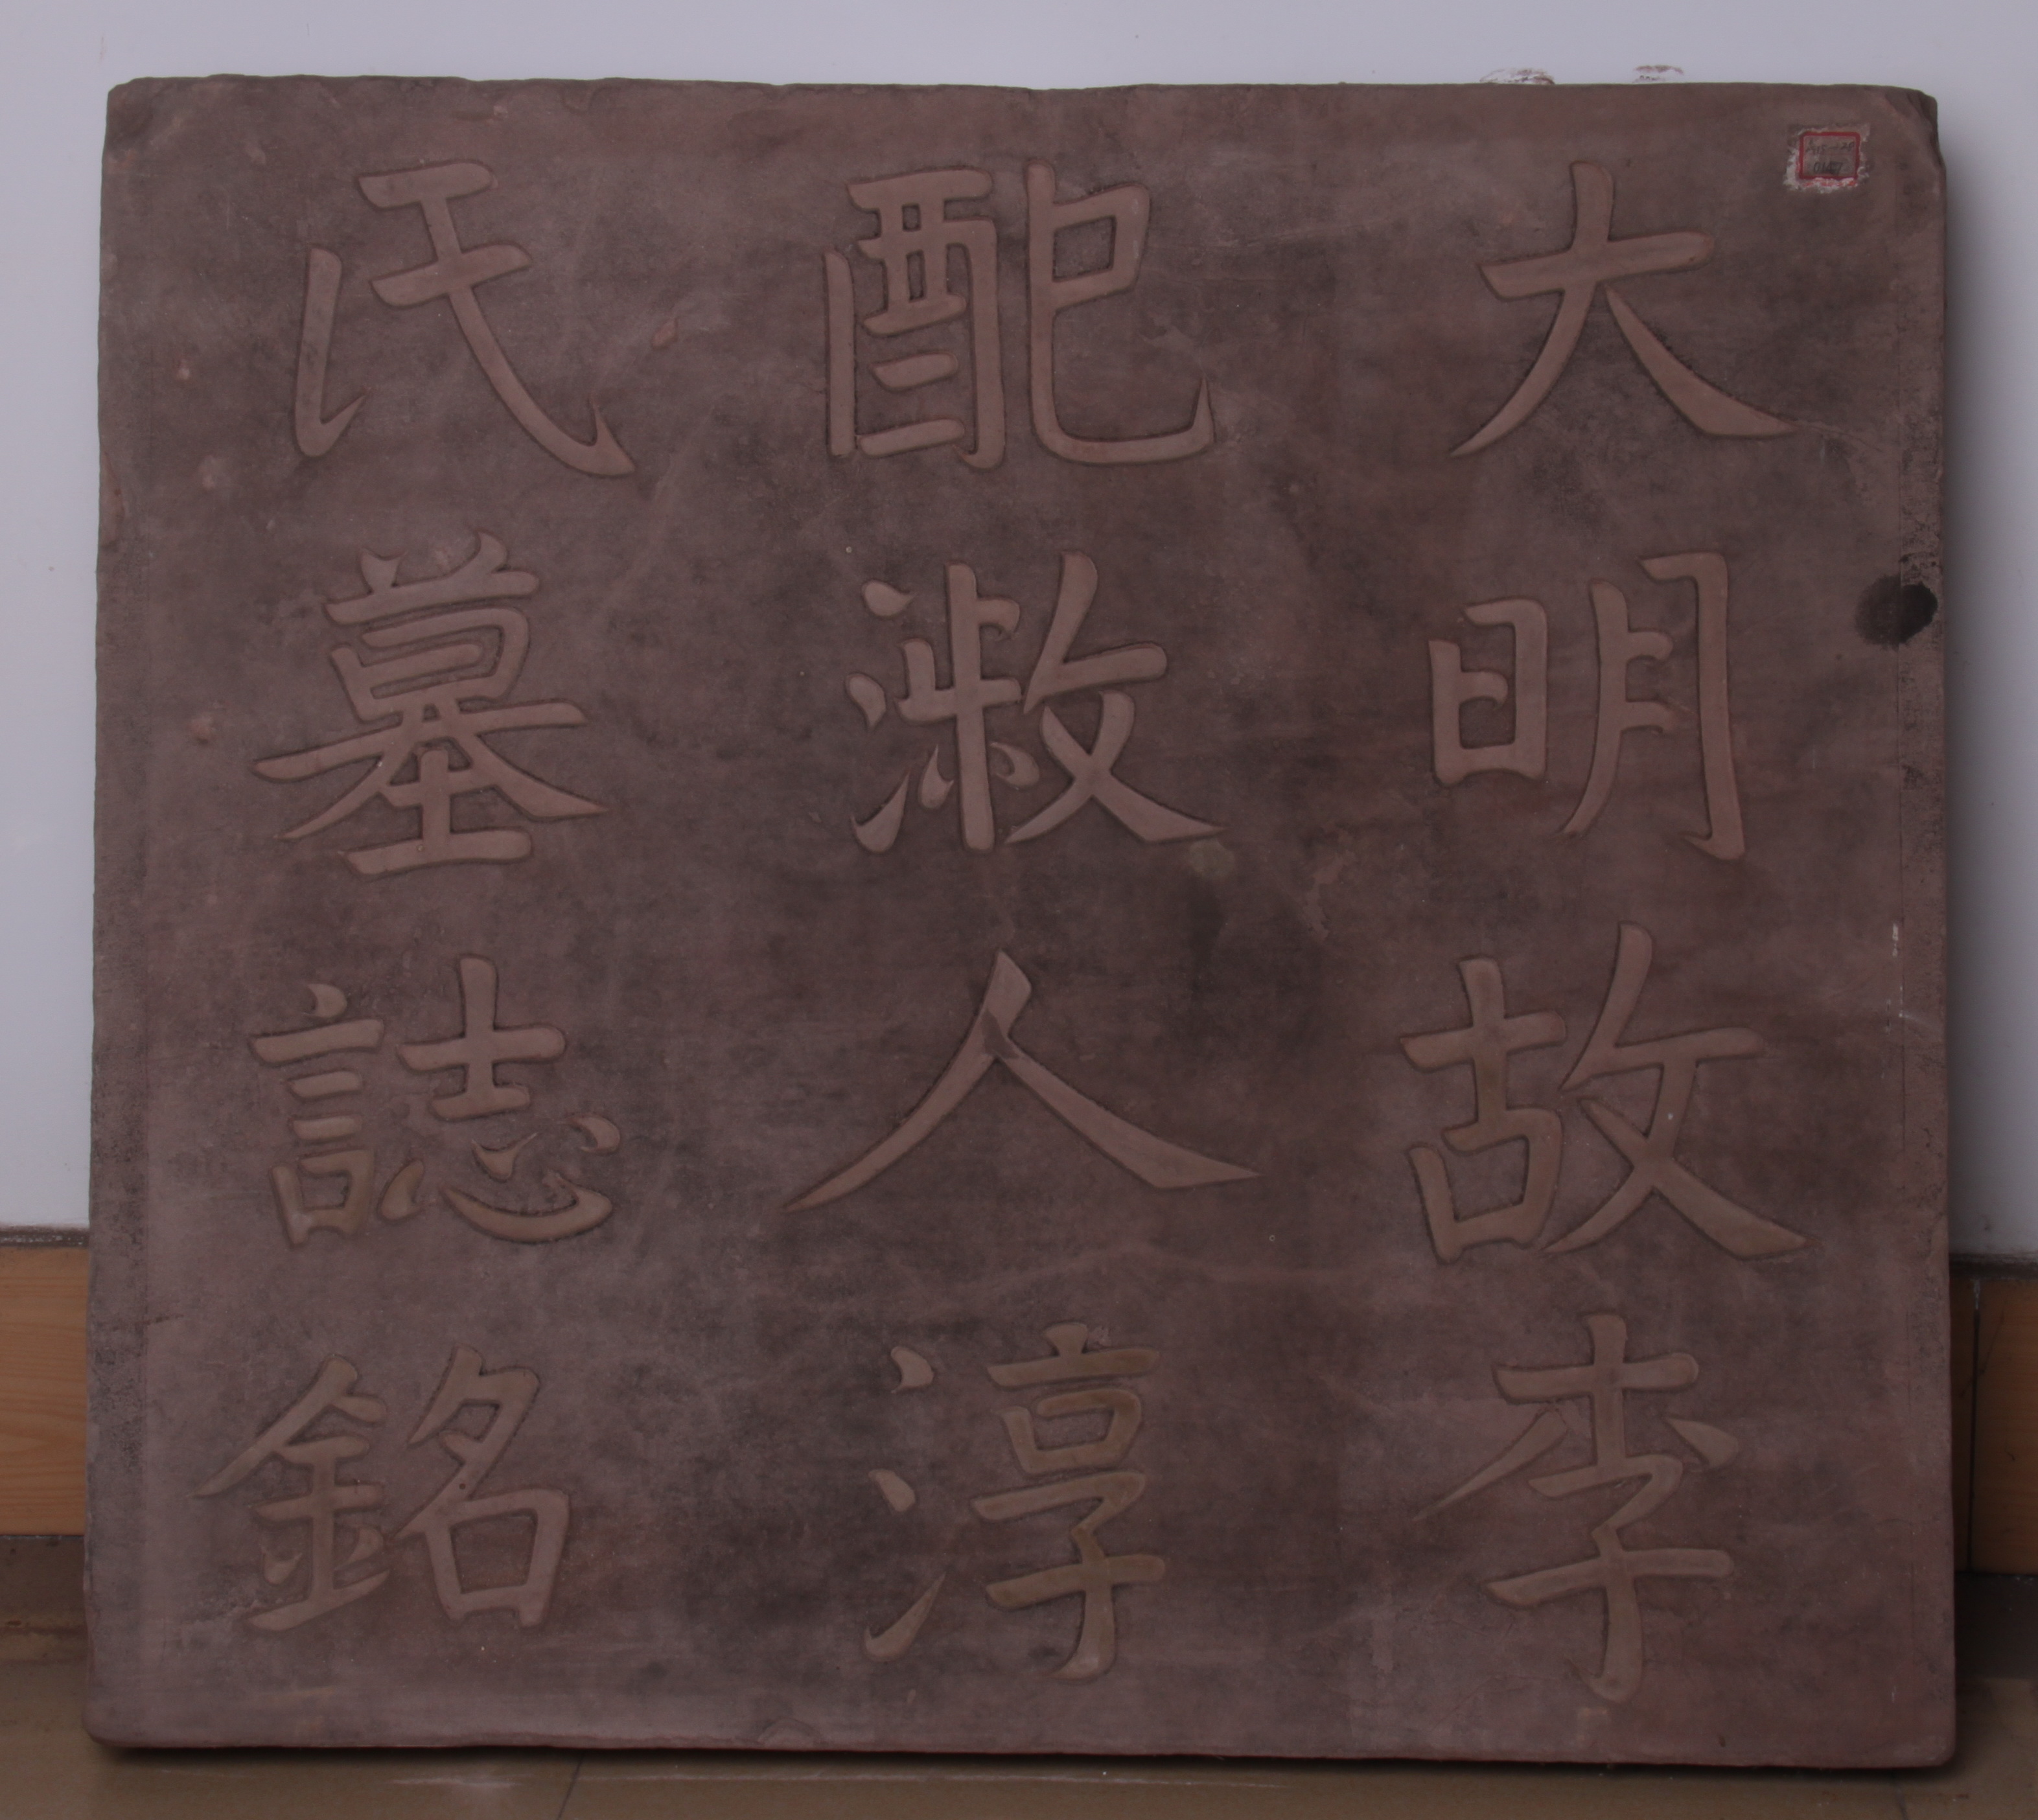 大明故李
配淑人淳
氏墓誌銘